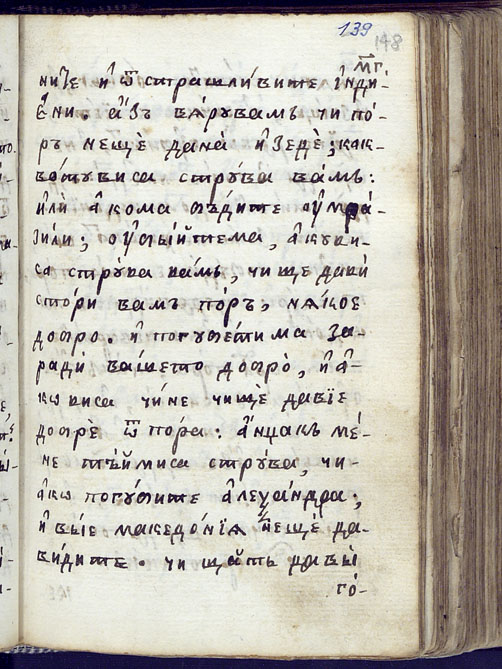 139
148
м҃г.
ничѐе и҆ ѿ страшли́вите і҆нди-
є́ни. а҆́зъ вѧ́рувамъ чи по́-
ръ нещѐ дана̀ и҆зедѐ; как-
во̀тувиса стру́ва ва́мъ:
и҆лѝ а҆кома бъ́дите оу҆мра́-
зили; оу҆бі́йтема, а҆куви-
са стрꙋ́ва ва́мъ, чи ще дави
сто́ри вамъ по́ръ, нѧ́кое
добро. и҆ погубе́тима за-
ра́ди ва́шето добро̀, и҆ а҆-
ко виса чи́не чищѐ давїе
добрѐ ѿ по́ра: а҆нцакъ ме́-
не тъ́й миса стрꙋ́ва, чи-
а҆ко погу́бите а҆леѯа́ндра;
и҆ вы́е македо́нїѧ нещѐ да-
ви́дите. чи ща́тъ давы̀
го́-